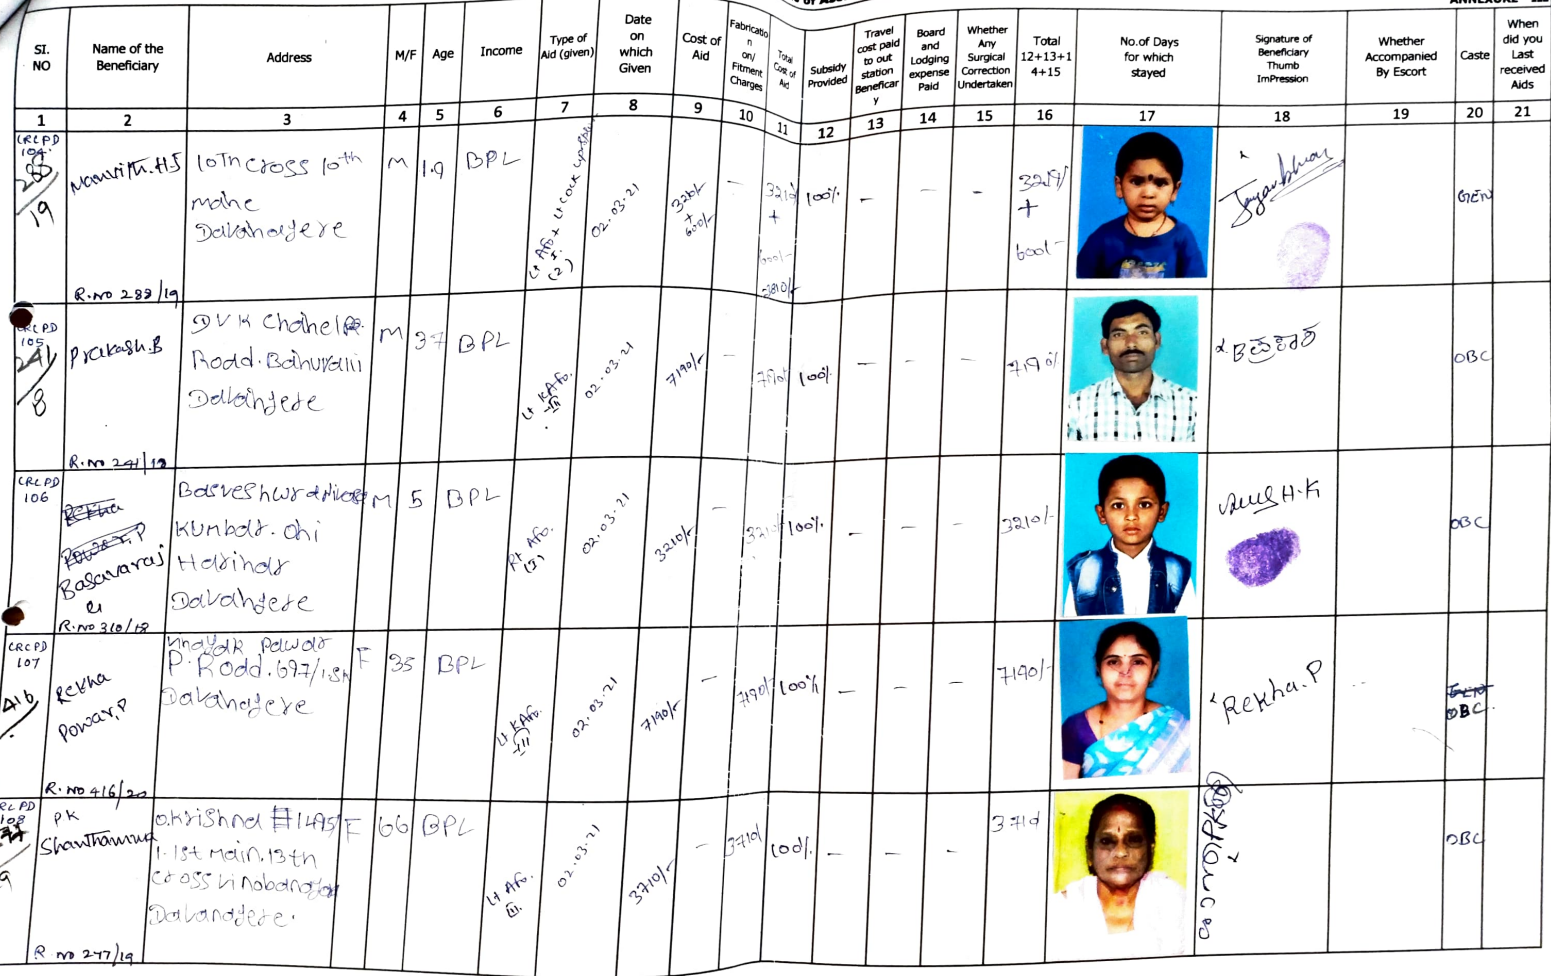 SI. NO
Name of the Beneficiary
Address
M/F
Age
Income
Type of Aid (given)
Date on which Given
Cost of Aid
Fabrication on/ Fitment Charges
Total Cost of Aid
Subsidy Provided
Travel cost paid to out station Beneficary
Board and Lodging expense Paid
Whether Any Surgical Correction Undertaken
Total 12+13+14+15
No.of Days for which stayed
Signature of Beneficiary Thumb ImPression
Whether Accompanied By Escort
Caste
When did you Last received Aids
1 2 3 4 5 6 7 8 9 10 11 12 13 14 15 16 17 18 19 20 21
CRCPD
104
19
Manvith.H.S
R.no 288/19
10Th Cross 10th
Davanagere
M
1.9
BPL
(2)
02.03.21
600/-
100%
600/-
GEN
CRCPD
105
241
8
Prakash.B
R.no 241/18
DVK Chanel
Davangere
M
37
BPL
Lt KAfo.
III
02.03.21
7190/-
100%
7190/-
OBC
CRCPD
106
Basavaraj
R.no 310/18
Kumbar. Oni
Harihar
Davangere
M
5
BPL
Rt Afo.
02.03.21
3210/-
100%
3210/-
H.K
OBC
CRCPD
107
416
Rekha
Powar.P
R.no 416/20
P. Road. 697/
Davanagere
F
35
BPL
Lt KAfo.
III
02.03.21
7190/-
7190/-
100%
7190/-
Rekha.P
OBC
108
PK
Shanthamma
R no 247/19
O.Krishna #1495/
1st main.13th
Cross Vinobanagar
Davanagere.
F
66
BPL
Lt Afo.
II
02.03.21
3710/-
3710/
100%
3710
OBC